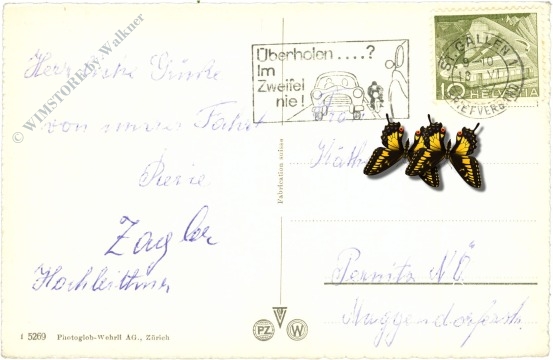 © WIMSTORE by Walkner
Herzliche Grüße
von unserer Fahrt
Zagler
Hochleittner
Überholen ....?
Im
Zweifel
nie!
ST. GALLEN 1
BRIEFVERSAND
10 HELVETIA
Fabrication suisse
Pernitz NÖ
Muggendorferstr.
1 5269 Photoglob-Wehrli AG., Zürich
PZ W